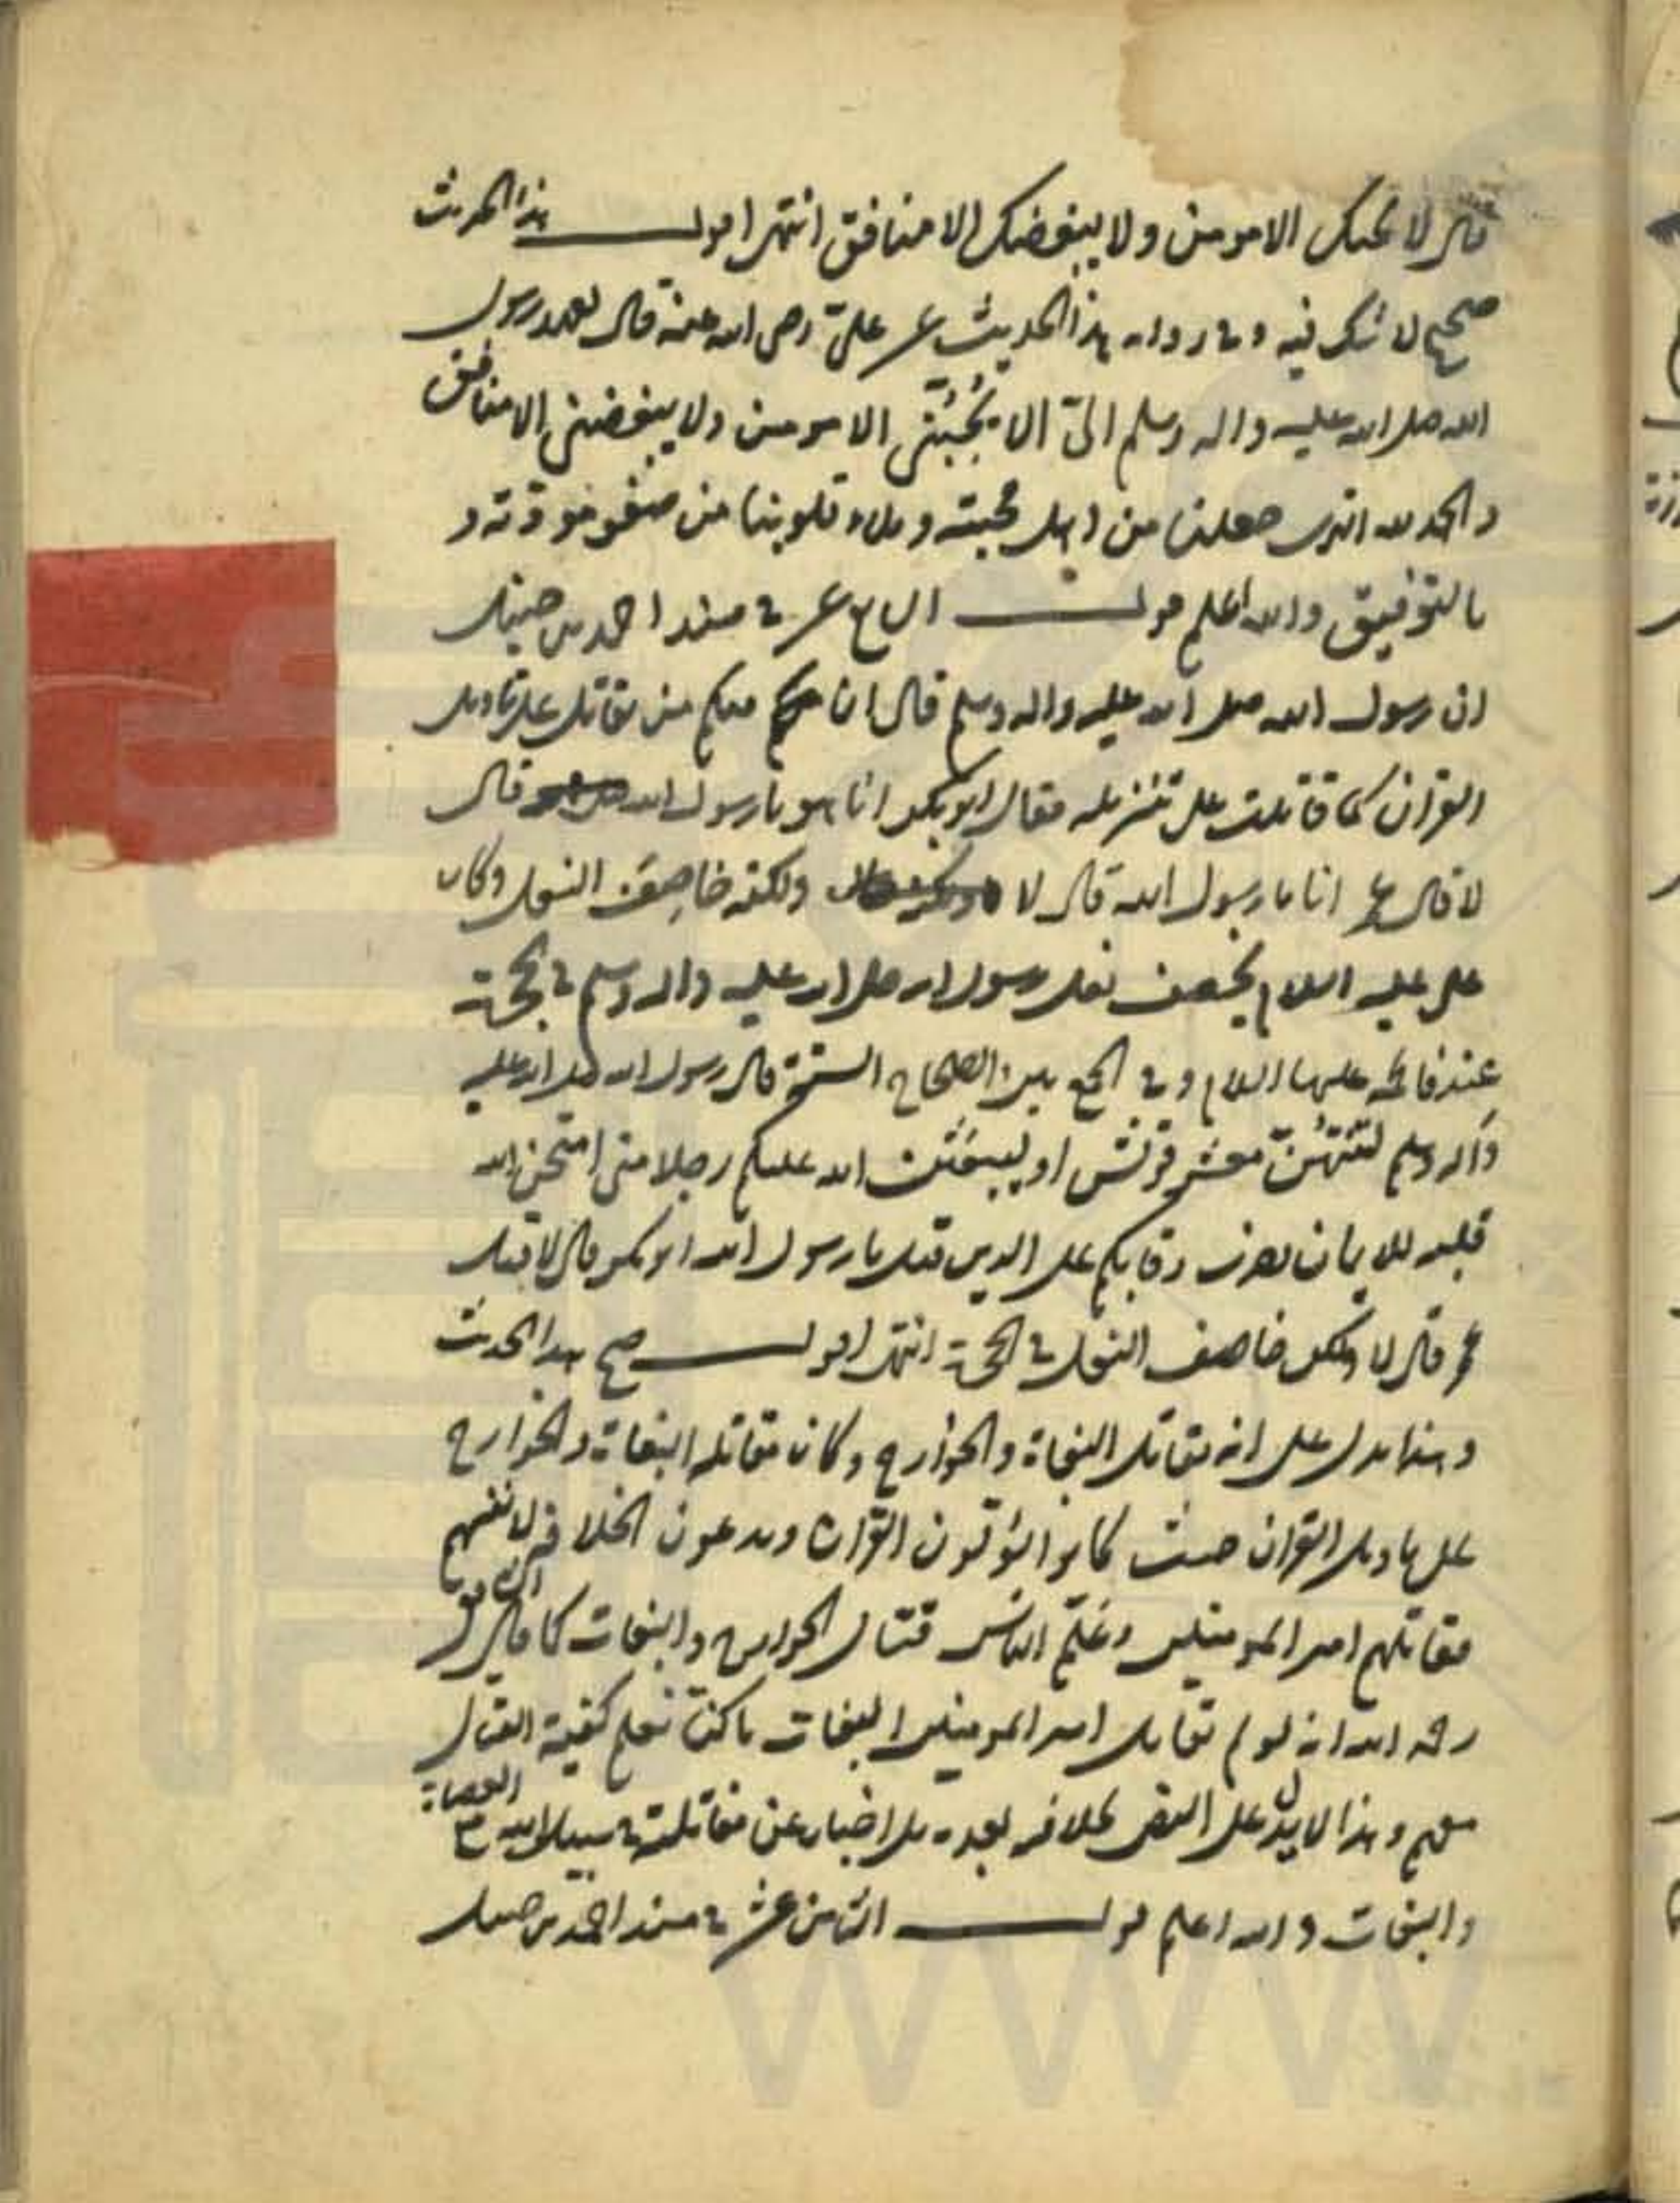 قال لا يحبك الا مومن ولا يبغضك الا منافق انتهى اقول هذا الحديث
صحيح لا شك فيه وفى رواىه هذا الحديث عن على رضى الله عنه قال لعهد رسول
الله صلى الله عليه واله وسلم الىّ الا يُحِبُّنى الا مومن ولا يبغضنى الا منافق
والحمد لله الذى جعلنا من اهل محبته وملاء قلوبنا من صفو مودته و
بالتوفيق والله اعلم قوله السابع عشر فى مسند احمد بن حنبل
ان رسول الله صلى الله عليه واله وسلم قال ان منكم من يقاتل على تاويل
القران كما قاتلت على تنزيله فقال ابو بكر انا هو يا رسول الله قال
لا قال عمر انا يا رسول الله قال لا ولكنه خاصِفَ النعل وكان
على عليه السلام يخصف نعل رسول الله صلى الله عليه واله وسلم فى الحجرة
عند فاطمة عليها السلام وفى الجمع بين الصحاح الستة قال رسول الله صلى الله عليه
واله وسلم لتنتهُنّ معشر قريش او ليبعَثَن الله عليكم رجلا منى امتحن الله
قلبه للايمان يضرب رقابكم على الدين قيل يا رسول الله ابو بكر قال لا قيل
عمر قال لا ولكن خاصف النعل فى الحجرة انتهى اقول صح هذا الحديث
وهذا يدل على انه يقاتل البغاة والخوارج وكان مقاتلة البغاة والخوارج
على تاويل القران حيث كانوا يُؤوّلون القران ويدعون الخلافة لانفسهم
فقاتلهم امير المومنين وعَلَّم الناس قتال الخوارج والبغات كما قال الشافعى
رحمه الله انه لو لم يقاتل امير المومنين البغات ما كنّا نعلم كيفية القتال
معهم وهذا لا يدل على النص بخلافته بعده بل اخبار عن مقاتلته فى سبيل الله مع العصاة
والبغات والله اعلم قوله الثامن عشر فى مسند احمد بن حنبل